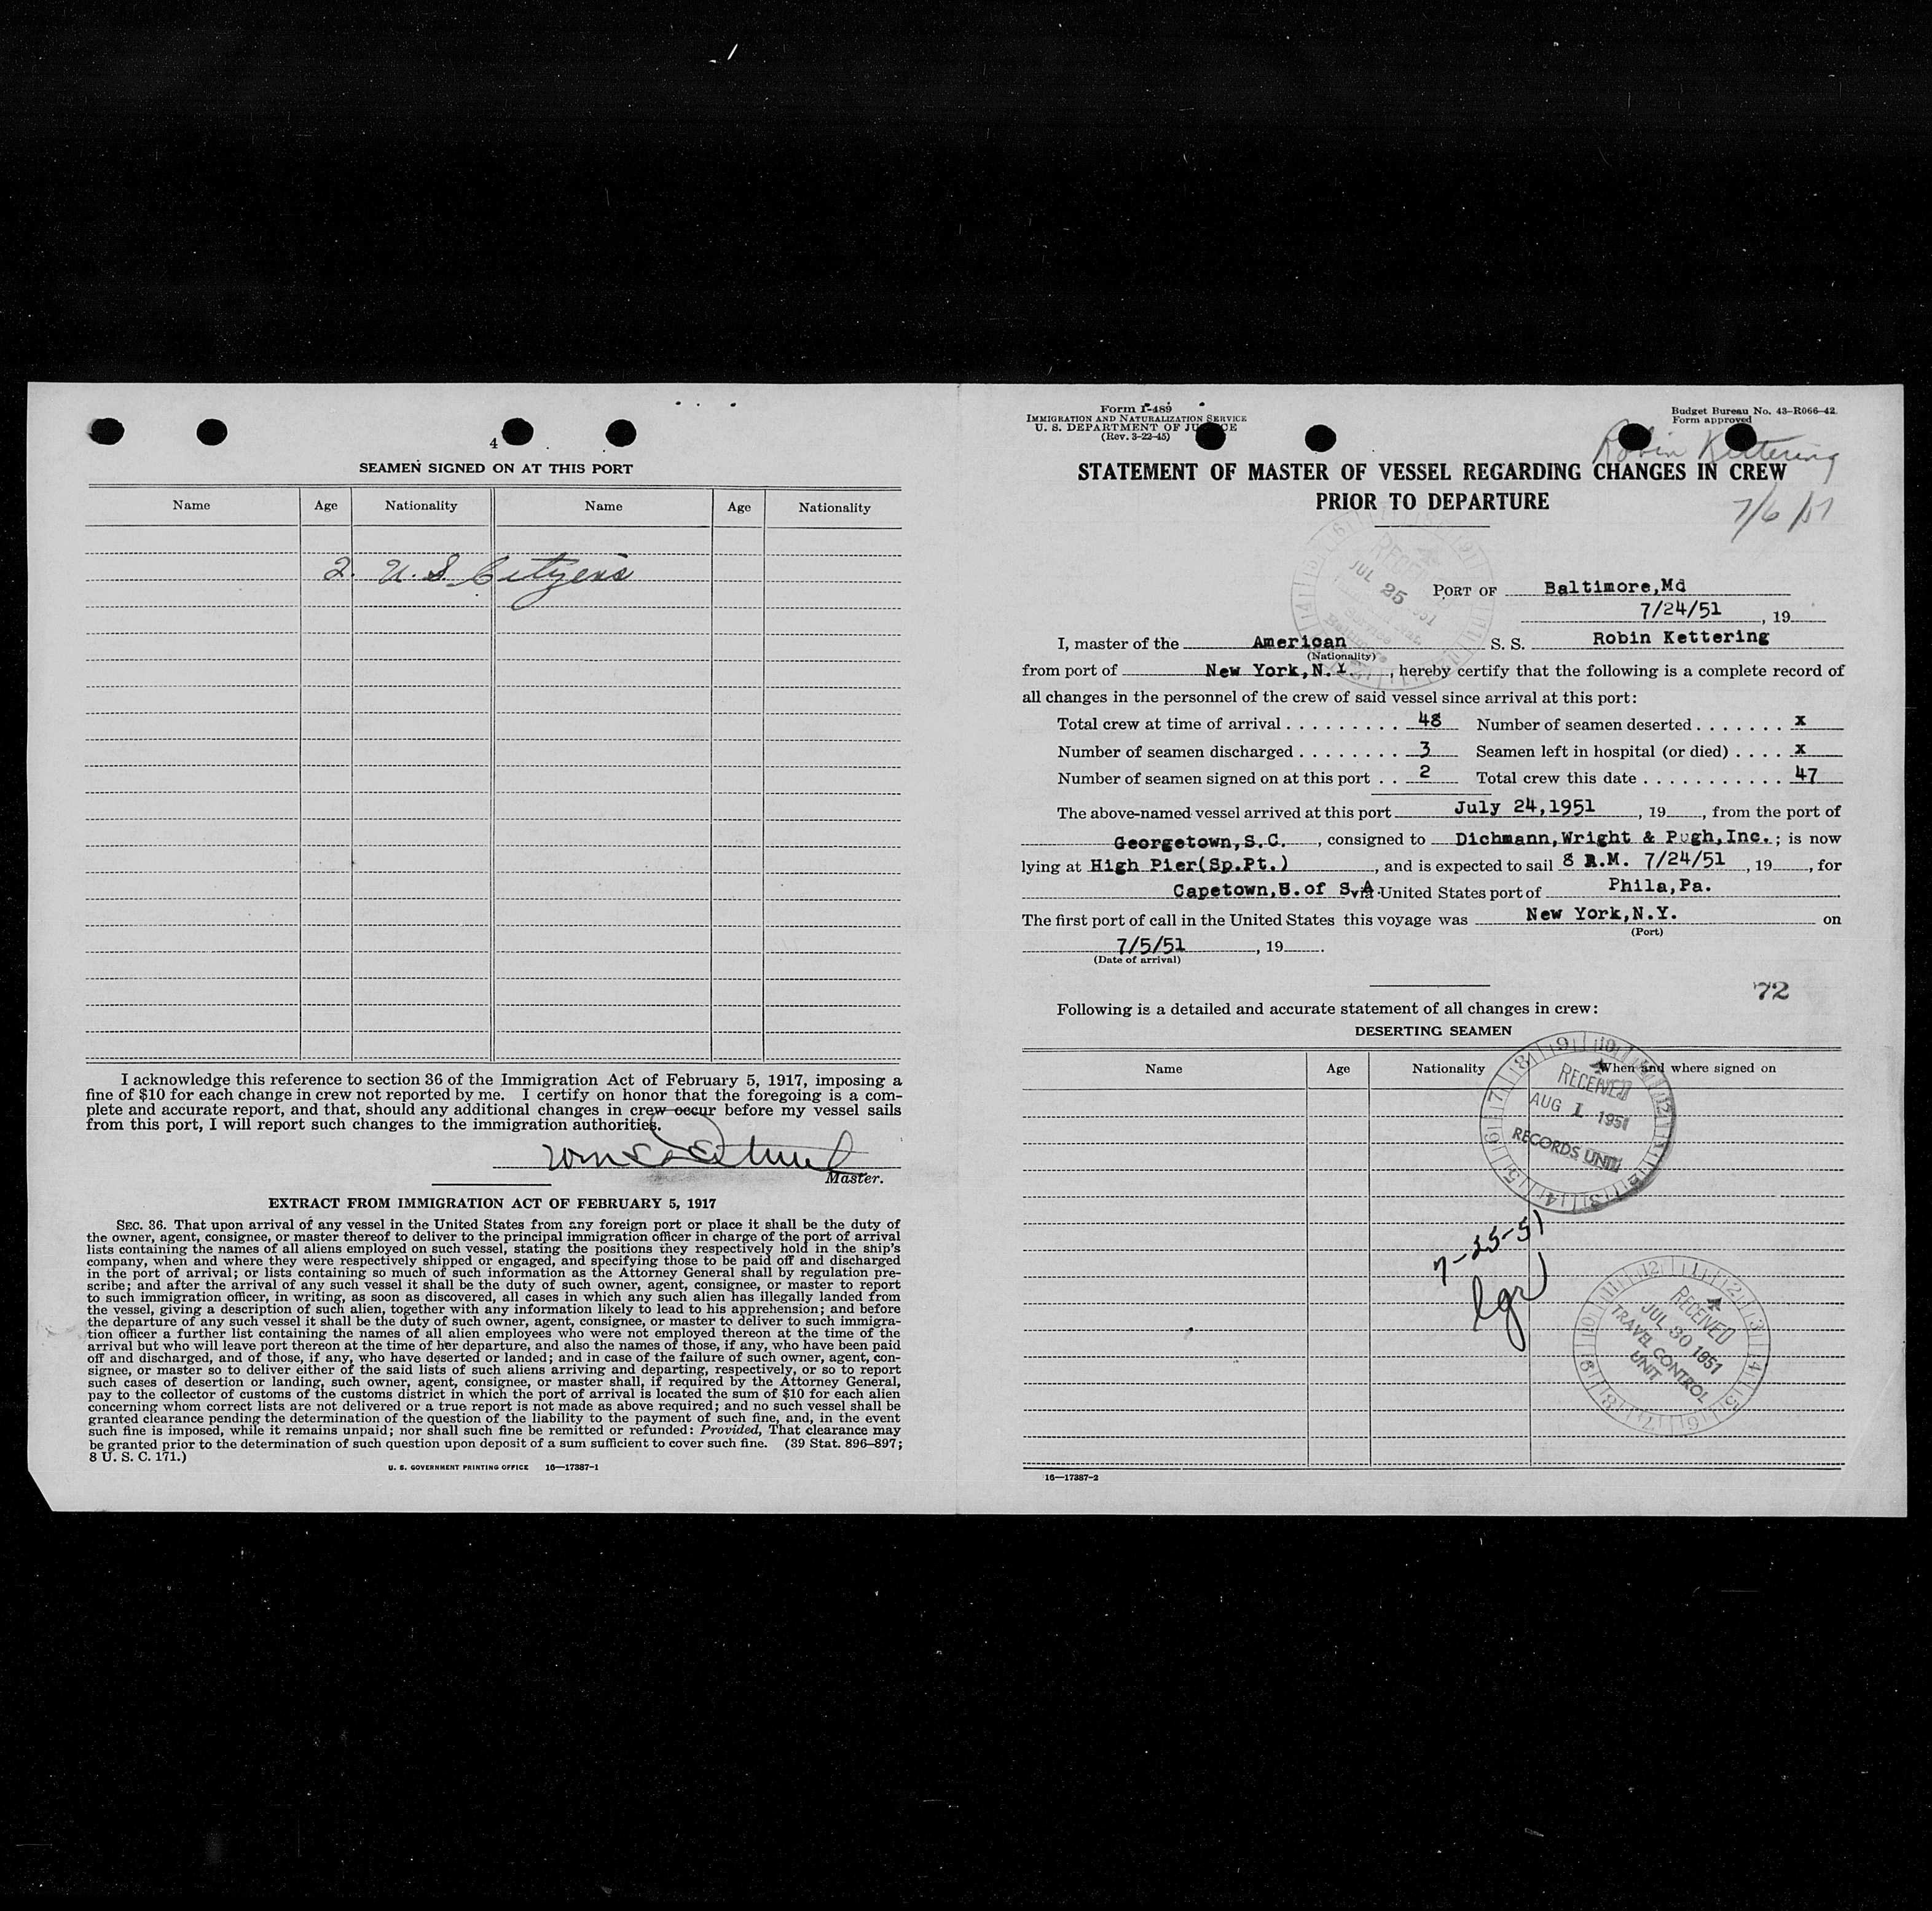 4
SEAMEN SIGNED ON AT THIS PORT
Name Age Nationality Name Age Nationality
2. U.S. Citizens
I acknowledge this reference to section 36 of the Immigration Act of February 5, 1917, imposing a
fine of $10 for each change in crew not reported by me. I certify on honor that the foregoing is a com-
plete and accurate report, and that, should any additional changes in crew occur before my vessel sails
from this port, I will report such changes to the immigration authorities.
Master.
EXTRACT FROM IMMIGRATION ACT OF FEBRUARY 5, 1917
SEC. 36. That upon arrival of any vessel in the United States from any foreign port or place it shall be the duty of
the owner, agent, consignee, or master thereof to deliver to the principal immigration officer in charge of the port of arrival
lists containing the names of all aliens employed on such vessel, stating the positions they respectively hold in the ship's
company, when and where they were respectively shipped or engaged, and specifying those to be paid off and discharged
in the port of arrival; or lists containing so much of such information as the Attorney General shall by regulation pre-
scribe; and after the arrival of any such vessel it shall be the duty of such owner, agent, consignee, or master to report
to such immigration officer, in writing, as soon as discovered, all cases in which any such alien has illegally landed from
the vessel, giving a description of such alien, together with any information likely to lead to his apprehension; and before
the departure of any such vessel it shall be the duty of such owner, agent, consignee, or master to deliver to such immigra-
tion officer a further list containing the names of all alien employees who were not employed thereon at the time of the
arrival but who will leave port thereon at the time of her departure, and also the names of those, if any, who have been paid
off and discharged, and of those, if any, who have deserted or landed; and in case of the failure of such owner, agent, con-
signee, or master so to deliver either of the said lists of such aliens arriving and departing, respectively, or so to report
such cases of desertion or landing, such owner, agent, consignee, or master shall, if required by the Attorney General,
pay to the collector of customs of the customs district in which the port of arrival is located the sum of $10 for each alien
concerning whom correct lists are not delivered or a true report is not made as above required; and no such vessel shall be
granted clearance pending the determination of the question of the liability to the payment of such fine, and, in the event
such fine is imposed, while it remains unpaid; nor shall such fine be remitted or refunded: Provided, That clearance may
be granted prior to the determination of such question upon deposit of a sum sufficient to cover such fine. (39 Stat. 896–897;
8 U. S. C. 171.)
U. S. GOVERNMENT PRINTING OFFICE 16—17387-1
Form I-489
IMMIGRATION AND NATURALIZATION SERVICE
U. S. DEPARTMENT OF JUSTICE
(Rev. 3-22-45)
Budget Bureau No. 43-R066-42.
Form approved
Robin Kettering
7/6/51
STATEMENT OF MASTER OF VESSEL REGARDING CHANGES IN CREW
PRIOR TO DEPARTURE
RECEIVED
JUL 25 1951
PORT OF Baltimore,Md
7/24/51, 19
I, master of the American S. S. Robin Kettering
(Nationality)
from port of New York,N.Y., hereby certify that the following is a complete record of
all changes in the personnel of the crew of said vessel since arrival at this port:
Total crew at time of arrival . . . . . . . . . . 48 Number of seamen deserted . . . . . . . x
Number of seamen discharged . . . . . . . . 3 Seamen left in hospital (or died) . . . . x
Number of seamen signed on at this port . . 2 Total crew this date . . . . . . . . . . . . 47
The above-named vessel arrived at this port July 24,1951, 19, from the port of
Georgetown,S.C., consigned to Dichmann,Wright & Pugh,Inc.; is now
lying at High Pier(Sp.Pt.), and is expected to sail 8 P.M. 7/24/51, 19, for
Capetown,U.of S.A via United States port of Phila,Pa.
The first port of call in the United States this voyage was New York,N.Y. on
(Port)
7/5/51, 19.
(Date of arrival)
72
Following is a detailed and accurate statement of all changes in crew:
DESERTING SEAMEN
Name Age Nationality When and where signed on
RECEIVED
AUG 1 1951
RECORDS UNIT
7-25-51
lgr
RECEIVED
JUL 30 1951
TRAVEL CONTROL
UNIT
16—17387-2